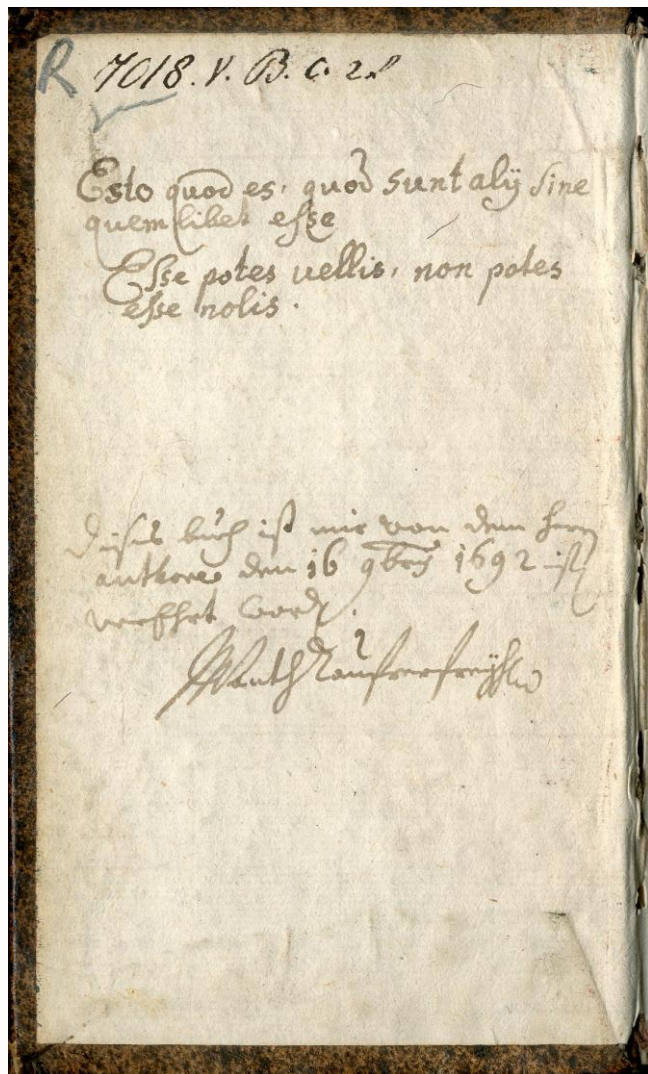 R 7018. V. B. C. 2.
Esto quod es, quod sunt alÿ sine
quemlibet esse
Esse potes uellis, non potes
esse nolis.
Dises buch ist mir von dem herrn
den 16 9bris 1692 ist
verehrt